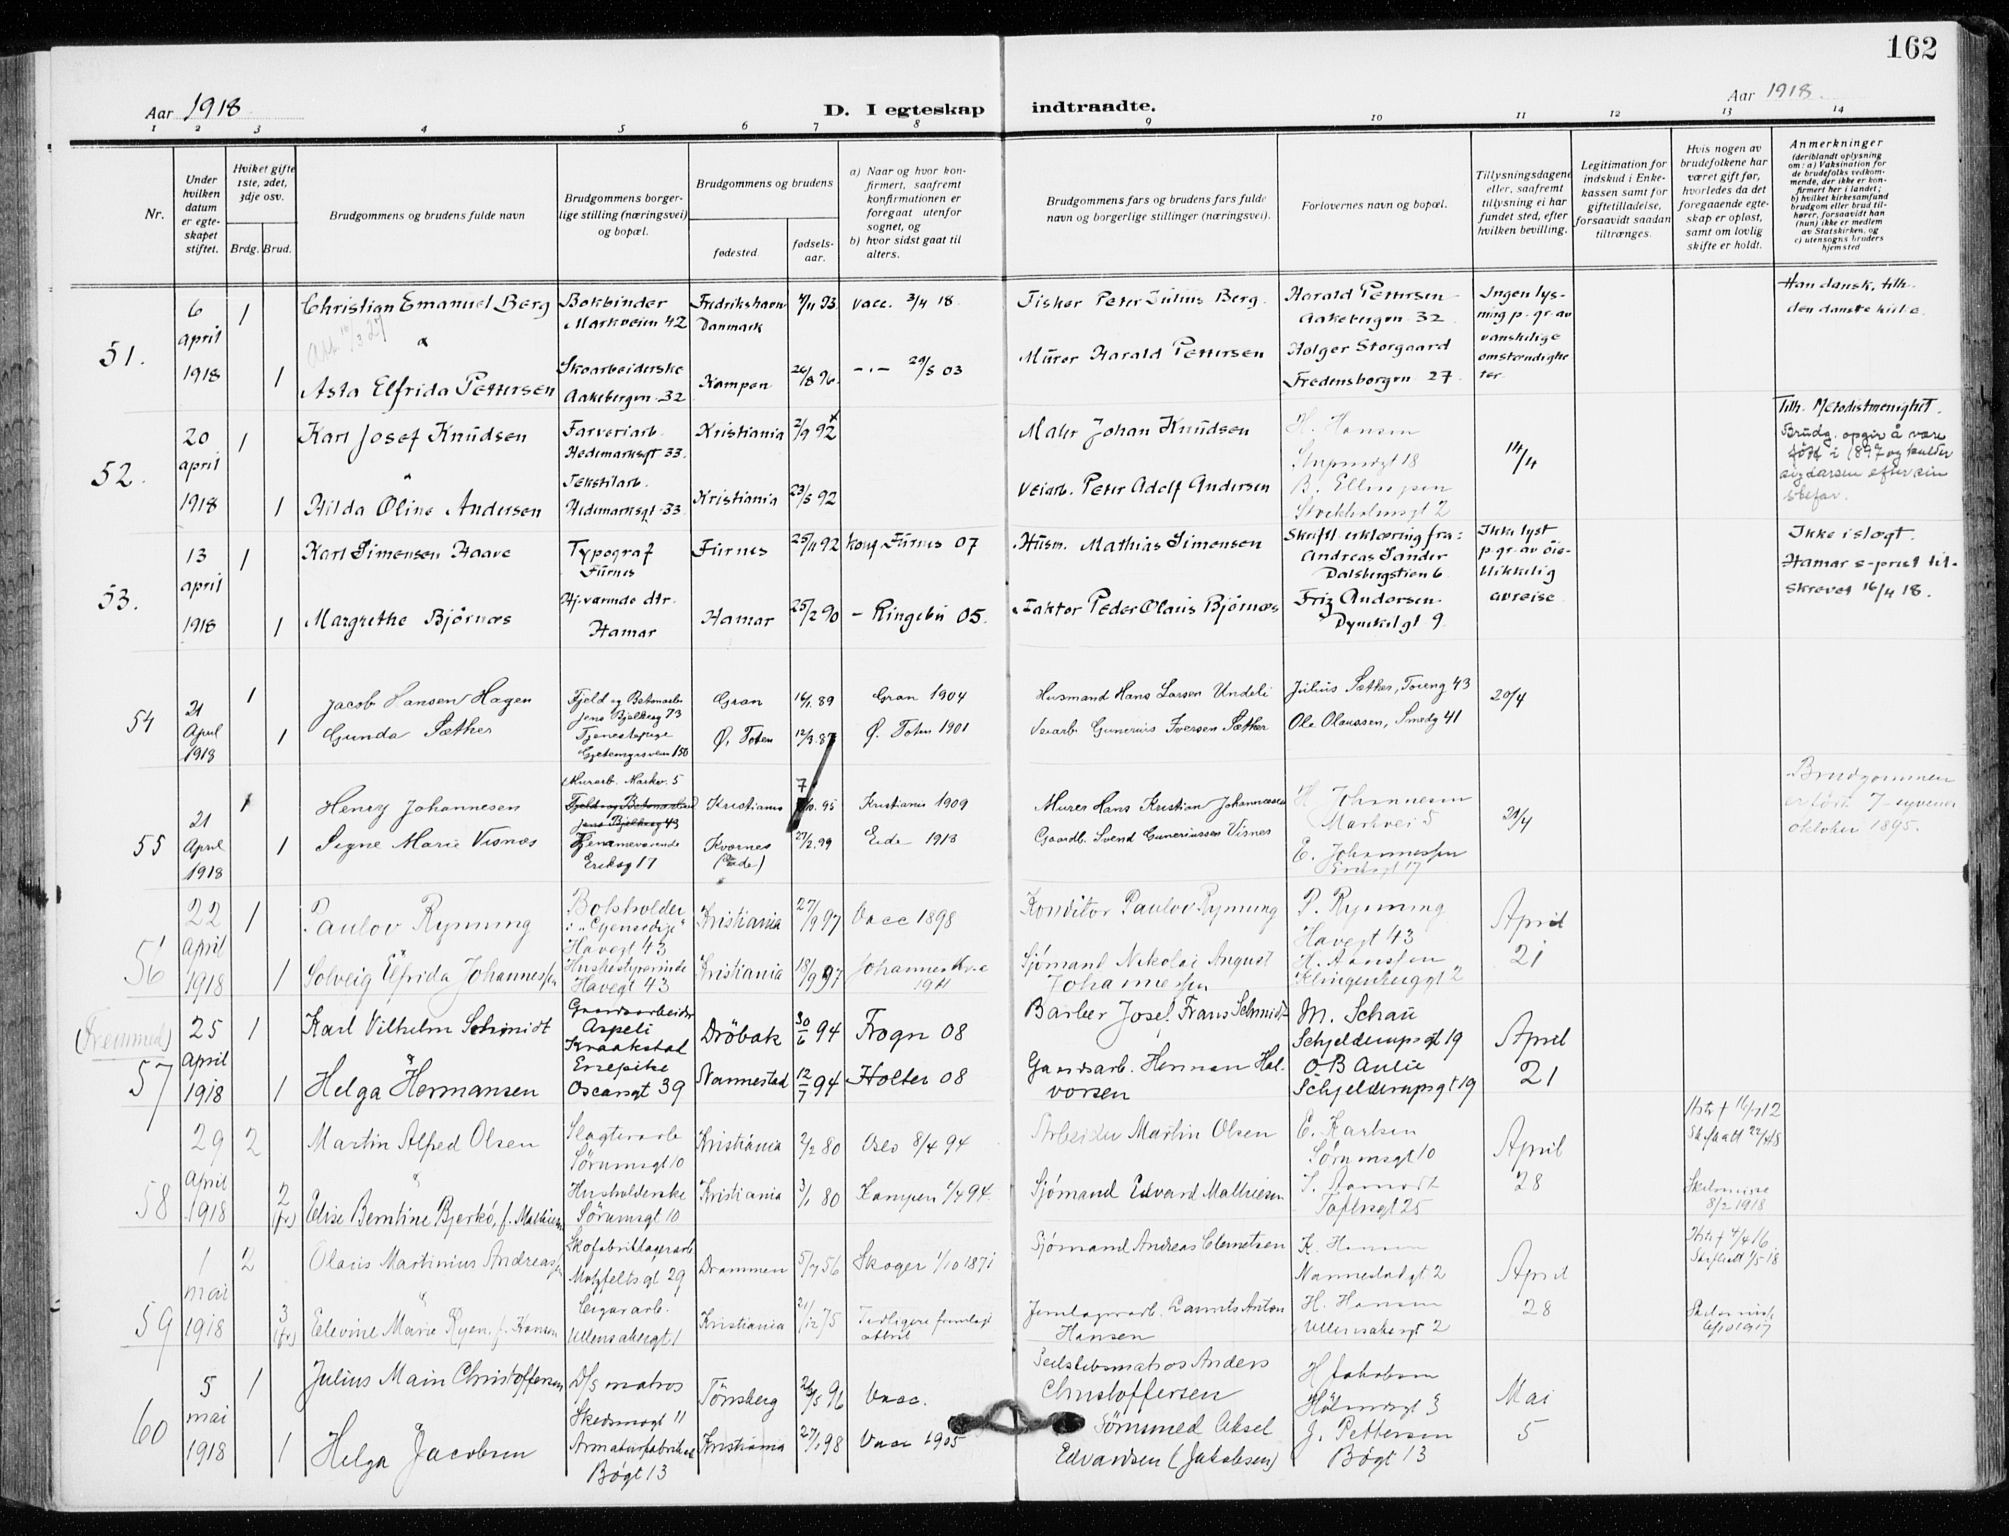 162
Aar 1918
D. I egteskap indtraadte.
Aar 1918.
1 2 3 4 5 6 7 8 9 10 11 12 13 14
Nr.
Under hvilken datum er egteskapet stiftet.
Hviket gifte 1ste, 2det, 3dje osv.
Brdg. Brud.
Brudgommens og brudens fulde navn
Brudgommens borgerlige stilling (næringsvei) og bopæl.
Brudgommens og brudens
fødested.
fødselsaar.
a) Naar og hvor konfirmert, saafremt konfirmationen er foregaat utenfor sognet, og
b) hvor sidst gaat til alters.
Brudgommens fars og brudens fars fulde navn og borgerlige stillinger (næringsvei).
Forlovernes navn og bopæl.
Tillysningsdagene eller, saafremt tillysning ei har fundet sted, efter hvilken bevilling.
Legitimation for indskud i Enkekassen samt for giftetilladelse, forsaavidt saadan tiltrænges.
Hvis nogen av brudefolkene har været gift før, hvorledes da det foregaaende egteskap er opløst, samt om lovlig skifte er holdt.
Anmerkninger
(deriblandt oplysning om: a) Vaksination for de brudefolks vedkommende, der ikke er konfirmert her i landet; b) hvilket kirkesamfund brudgom eller brud tilhører, forsaavidt han (hun) ikke er medlem av Statskirken, og c) utensogns bruders hjemsted
51.
6 april 1918
1
Christian Emanuel Berg
Bokbinder Markveien 42
Fredrikshavn Danmark
4/11 93
vacc. 3/4 18.
Fisker Peter Julius Berg.
Harald Pettersen Aakebergvn 32
Ingen lysning p. gr. av vanskelige omstændigheter.
Han dansk, tilh. den danske kirke.
1
Asta Elfrida Pettersen
Skoarbeiderske Aakebergvn 32
Kampen
26/8 96.
-"- 29/5 03
Murer Harald Pettersen
Holger Storgaard Fredensborgvn 27.
52.
20 april 1918
1
Karl Josef Knudsen
Farveriarb. Hedemarksgt 33.
Kristiania
2/9 92
Maler Johan Knudsen
H. Hansen
14/4
Tilh. Metodistmenighet.
Brudg. opgir å være født i 1897 og kalder sig Larsen efter sin stefar.
1
Hilda Oline Andersen
Tekstilarb. Hedemarksgt 33.
Kristiania
23/5 92
Veiarb. Peter Adolf Andersen
Stockholmsgt 2
53.
13 april 1918
1
Karl Simensen Haave
Typograf Furnes
Furnes
25/11 92
konf. Furnes 07
Husm. Mathias Simensen
Skriftl. erklæring fra: Andreas Sander Dalsbergstien 6.
Ikke lyst p. gr. av øieblikkelig avreise
Ikke i slegt.
Hamar s-prest tilskrevet 16/4 18.
1
Margrethe Bjørnæs
Hj. værende dtr. Hamar
Hamar
25/2 90
- Ringebu 05.
Faktor Peder Olaus Bjørnæs
Friz Andersen Dynekilgt 9.
54
21 April 1918
1
Jacob Hansen Hagen
Fjeld og Betonarb. Jens Bjelkesg 73
Gran
16/1 89
Gran 1904
Husmand Hans Larsen Undeli
Julius Sæther, Toieng 43
20/4
1
Gunda Sæther
Tjenestepige
Ø. Toten
12/3 87
Ø. Toten 1901
Veiarb. Gunerius Iversen Sæther
Ole Olaussen, Smedg 41
55
21 April 1918
1
Henry Johannesen
Murarb. Markv. 5
Fjeld og Betonarbeid Jens Bjelkesg 43
Kristiania
7/10. 95
Kristiania 1909
Murer Hans Kristian Johannessen
H. Johannesen Markvei 5
21/4
Brudgommen er født 7 - syvende oktober 1895.
1
Signe Marie Visnæs
Hjemmeværende Eriksg 17
Kvernes (Eide)
27/2. 99
Eide 1913
Gaardb. Svend Guneriussen Visnes
E. Johannessen Eriksgt 17
56
22 april 1918
1
Paulov Rynning
Havegt 43
Kristiania
27/9 97
Vacc 1898
Konditor Paulov Rynning
P. Rynning Havegt 43
April 21
1
Solveig Elfrida Johannessen
Husbestyrerinde Havegt 43
Kristiania
18/9 97
Johannes K. 1911
Sjømand Nikolai August Johannessen
H. Hanssen Klingenberggt 2
(Fremmed)
57
25 april 1918
1
Karl Vilhelm Schmidt
Gaardsarbeider Aspeli Kraakstad
Drøbak
30/6 94
Frogn 08
Barber Josef Frans Schmidt
M. Schau Schjelderupsgt 19
April 21
1
Helga Hermansen
Enepike Oscarsgt 39
Nannestad
12/7 94
Holter 08
Gaardsarb. Herman Halvorsen
O B Aulie Schjelderupsgt 19
58
29 april 1918
2
Martin Alfred Olsen
Slagterarb Sørumsgt 10
Kristiania
2/2 80
Oslo 8/4 94
Arbeider Martin Olsen
E. Karlsen Sørumsgt 10
April 28
Hstr † 16/1 12
Skifteatt 22/4 18
2 (fr)
Elise Berntine Bjerkö, f. Mathiesen
Husholderske Sørumsgt 10
Kristiania
3/1 80
Kampen 1/4 94.
Sjømand Edvard Mathiesen
Toftesgt 25
Skilsmisse 8/2 1918
59
1 mai 1918
2
Olaus Martinius Andreassen
Skofabriklagerarb Motzfeltsgt 29
Drammen
5/7 56
Skoger 1/10 1871
Sjømand Andreas Clemetsen
K. Hansen Nannestadgt 2
April 28
Hstr † 4/4 16.
3 (fr)
Edevine Marie Ryen, f. Hansen
Cigararb. Ullensakergt 1
Kristiania
21/12 75
Tidligere fremlagt attest
Jernlagerarb. Laurits Anton Hansen
H. Hansen Ullensakergt 2
60
5 mai 1918
1
Julius Main Christoffersen
D/s matros Skedsmogt 11
Tönsberg
26/5 96
Vacc.
Seilskibsmatros Anders Christoffersen
H Jakobsen
Mai 5
1
Helga Jacobsen
Bögt 13
Kristiania
27/1 98
Vacc 1905
Sömmed Aksel Edvardsen (Jakobsen)
J. Pettersen Bögt 13